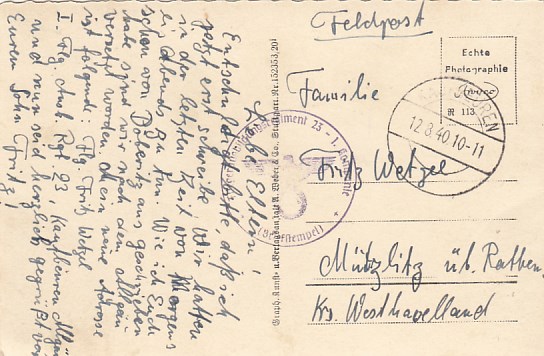 Liebe Eltern!
Entschuldigt bitte, daß ich
jetzt erst schreibe. Wir hatten
in der letzten Zeit von Morgens
bis Abends zu tun. Wie ich Euch
schon von Döberitz aus geschrieben
habe sind wir nach dem Allgäu
versetzt worden. Mein neue Adresse
ist folgend: Flg. Fritz Wetzel
I. Flg. Ausb. Rgt. 23, Kaufbeuren Allgäu
und nun seid herzlich gegrüßt von
Eurem Sohn Fritz!
Graph. Kunst- u. Verlagsanstalt A. Weber & Co. Stuttgart. Nr. 152353, 20
Feldpost
Echte
Photographie
R 113
KAUFBEUREN
12.8.40.10-11
regiment 23 - 1. Kompanie
(Briefstempel)
Familie
Fritz Wetzel
Mützlitz üb. Rathen.
Krs. Westhavelland